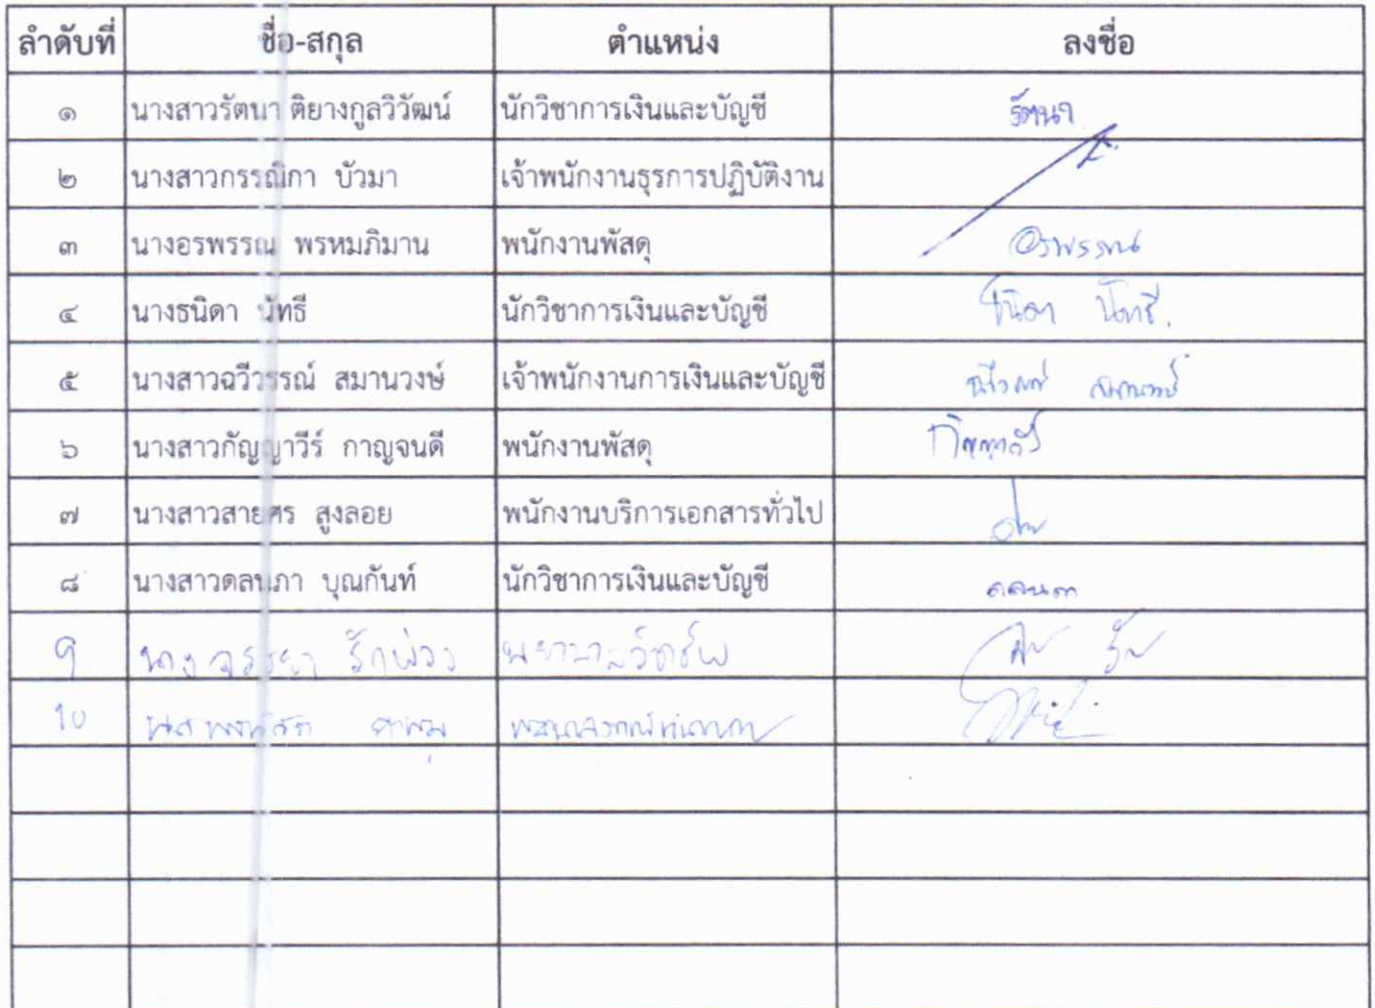 ลำดับที่ ชื่อ-สกุล ตำแหน่ง ลงชื่อ
๑ นางสาวรัตนา ติยางกูลวิวัฒน์ นักวิชาการเงินและบัญชี รัตนา
๒ นางสาวกรรณิกา บัวมา เจ้าพนักงานธุรการปฏิบัติงาน
๓ นางอรพรรณ พรหมภิมาน พนักงานพัสดุ อรพรรณ
๔ นางธนิดา นัทธี นักวิชาการเงินและบัญชี ธนิดา นัทธี
๕ นางสาวฉวีวรรณ์ สมานวงษ์ เจ้าพนักงานการเงินและบัญชี ฉวีวรรณ์ สมานวงษ์
๖ นางสาวกัญญาวีร์ กาญจนดี พนักงานพัสดุ
๗ นางสาวสายศร สูงลอย พนักงานบริการเอกสารทั่วไป
๘ นางสาวดลนภา บุณกันท์ นักวิชาการเงินและบัญชี ดลนภา
9 นาง จรรยา รักพ่วง พยาบาลวิชาชีพ
10